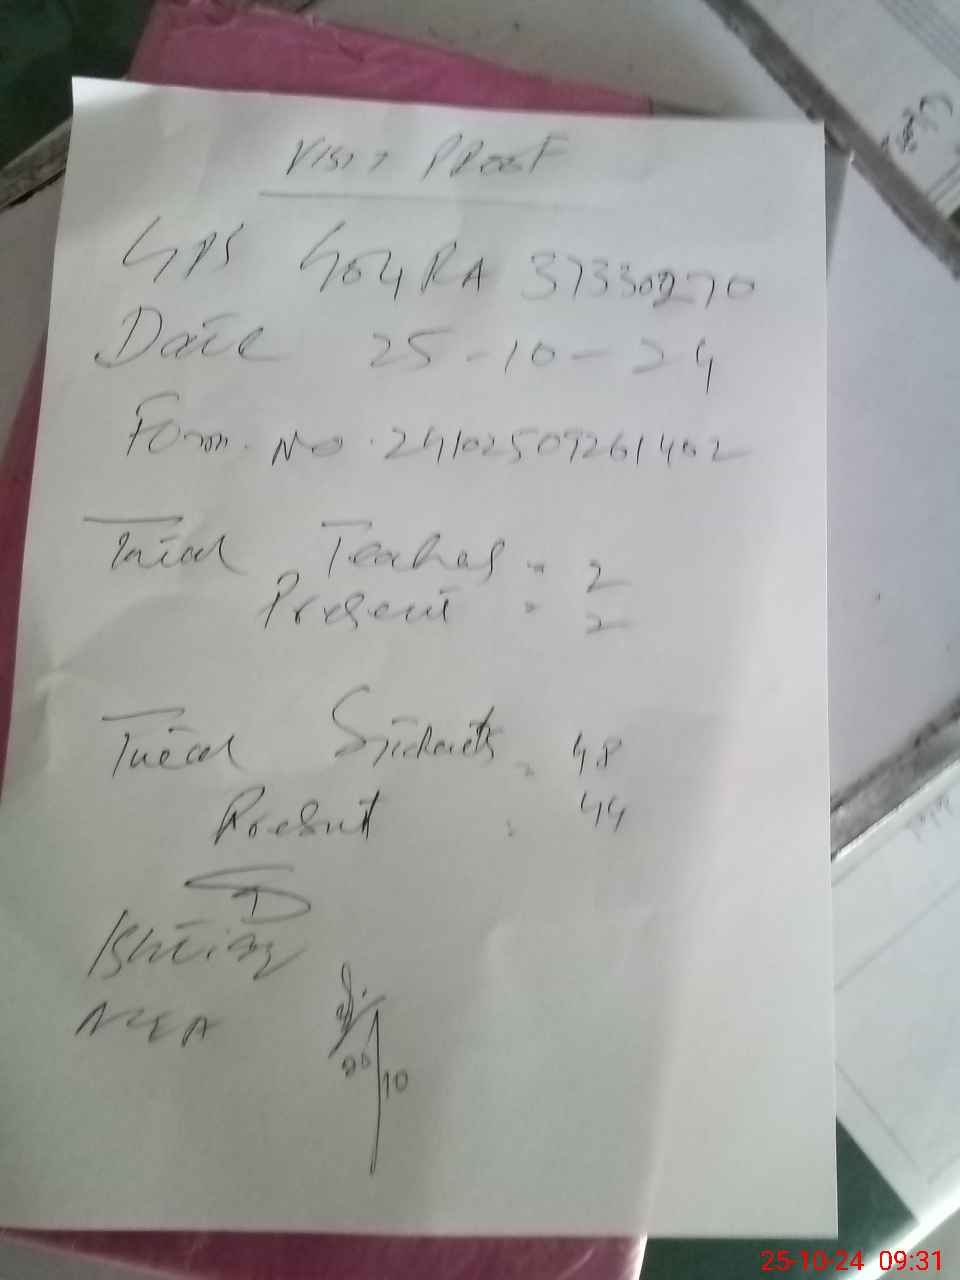 VISIT PROOF
GPS GOGRA 37330270
Date 25-10-24
Form. No. 24102509261402
Total Teachers = 2
Present = 2
Total Students = 48
Present = 44
Ishtiaq
AEEA
25-10-24 09:31